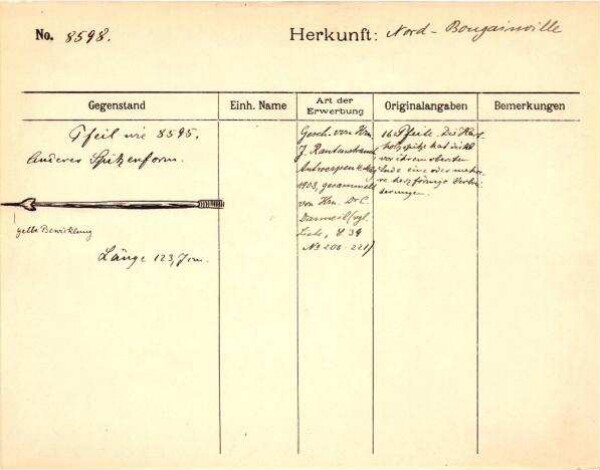 No. 8598. Herkunft: Nord-Bougainville
Gegenstand Einh. Name Art der Erwerbung Originalangaben Bemerkungen
Pfeil wie 8595,
Anderer Spitzenform.
gelbe Bewicklung
Länge 123,7 cm.
Gesch. von Hrn.
J. Rautenstrauch
Antwerpen
1903, gesammelt
von Hrn. Dr C.
vgl.
Liste, S 39
No 206-221)
16 Pfeile. Die
holzspitze hat dicht
vor ihrem oberen
Ende eine oder mehre-
re herzförmige Verbrei-
terungen.